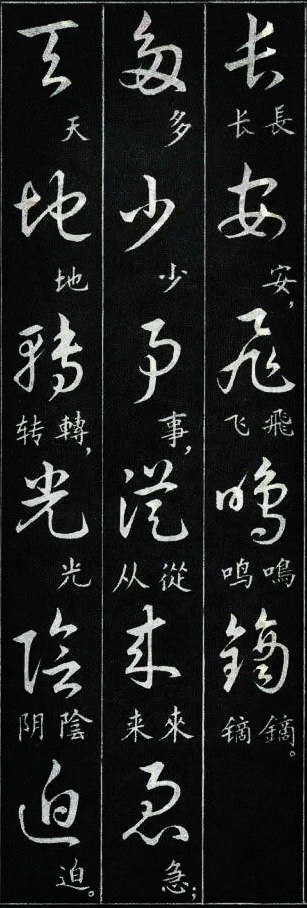 长安飛鳴鏑
長安，飛鳴鏑。
长飞鸣镝
多少事從来急
多少事，從來急；
从来
天地轉光陰迫
天地轉，光陰迫。
转阴